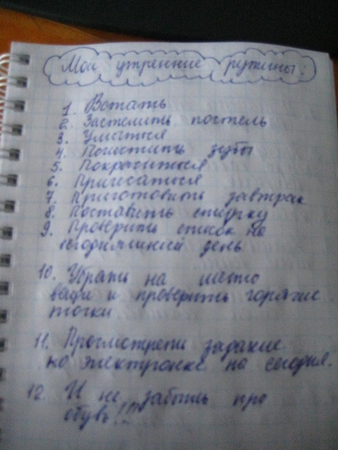 Мои утренние рутины:
1. Встать
2. Застелить постель
3. Умыться
4. Почистить зубы
5. Покраситься
6. Причесаться
7. Приготовить завтрак
8. Поставить стирку
9. Проверить список на
сегодняшний день
10. Убрать на место
вещи и проверить горячие
точки
11. Просмотреть задание
на электронке на сегодня.
12. И не забыть про
обувь!!!